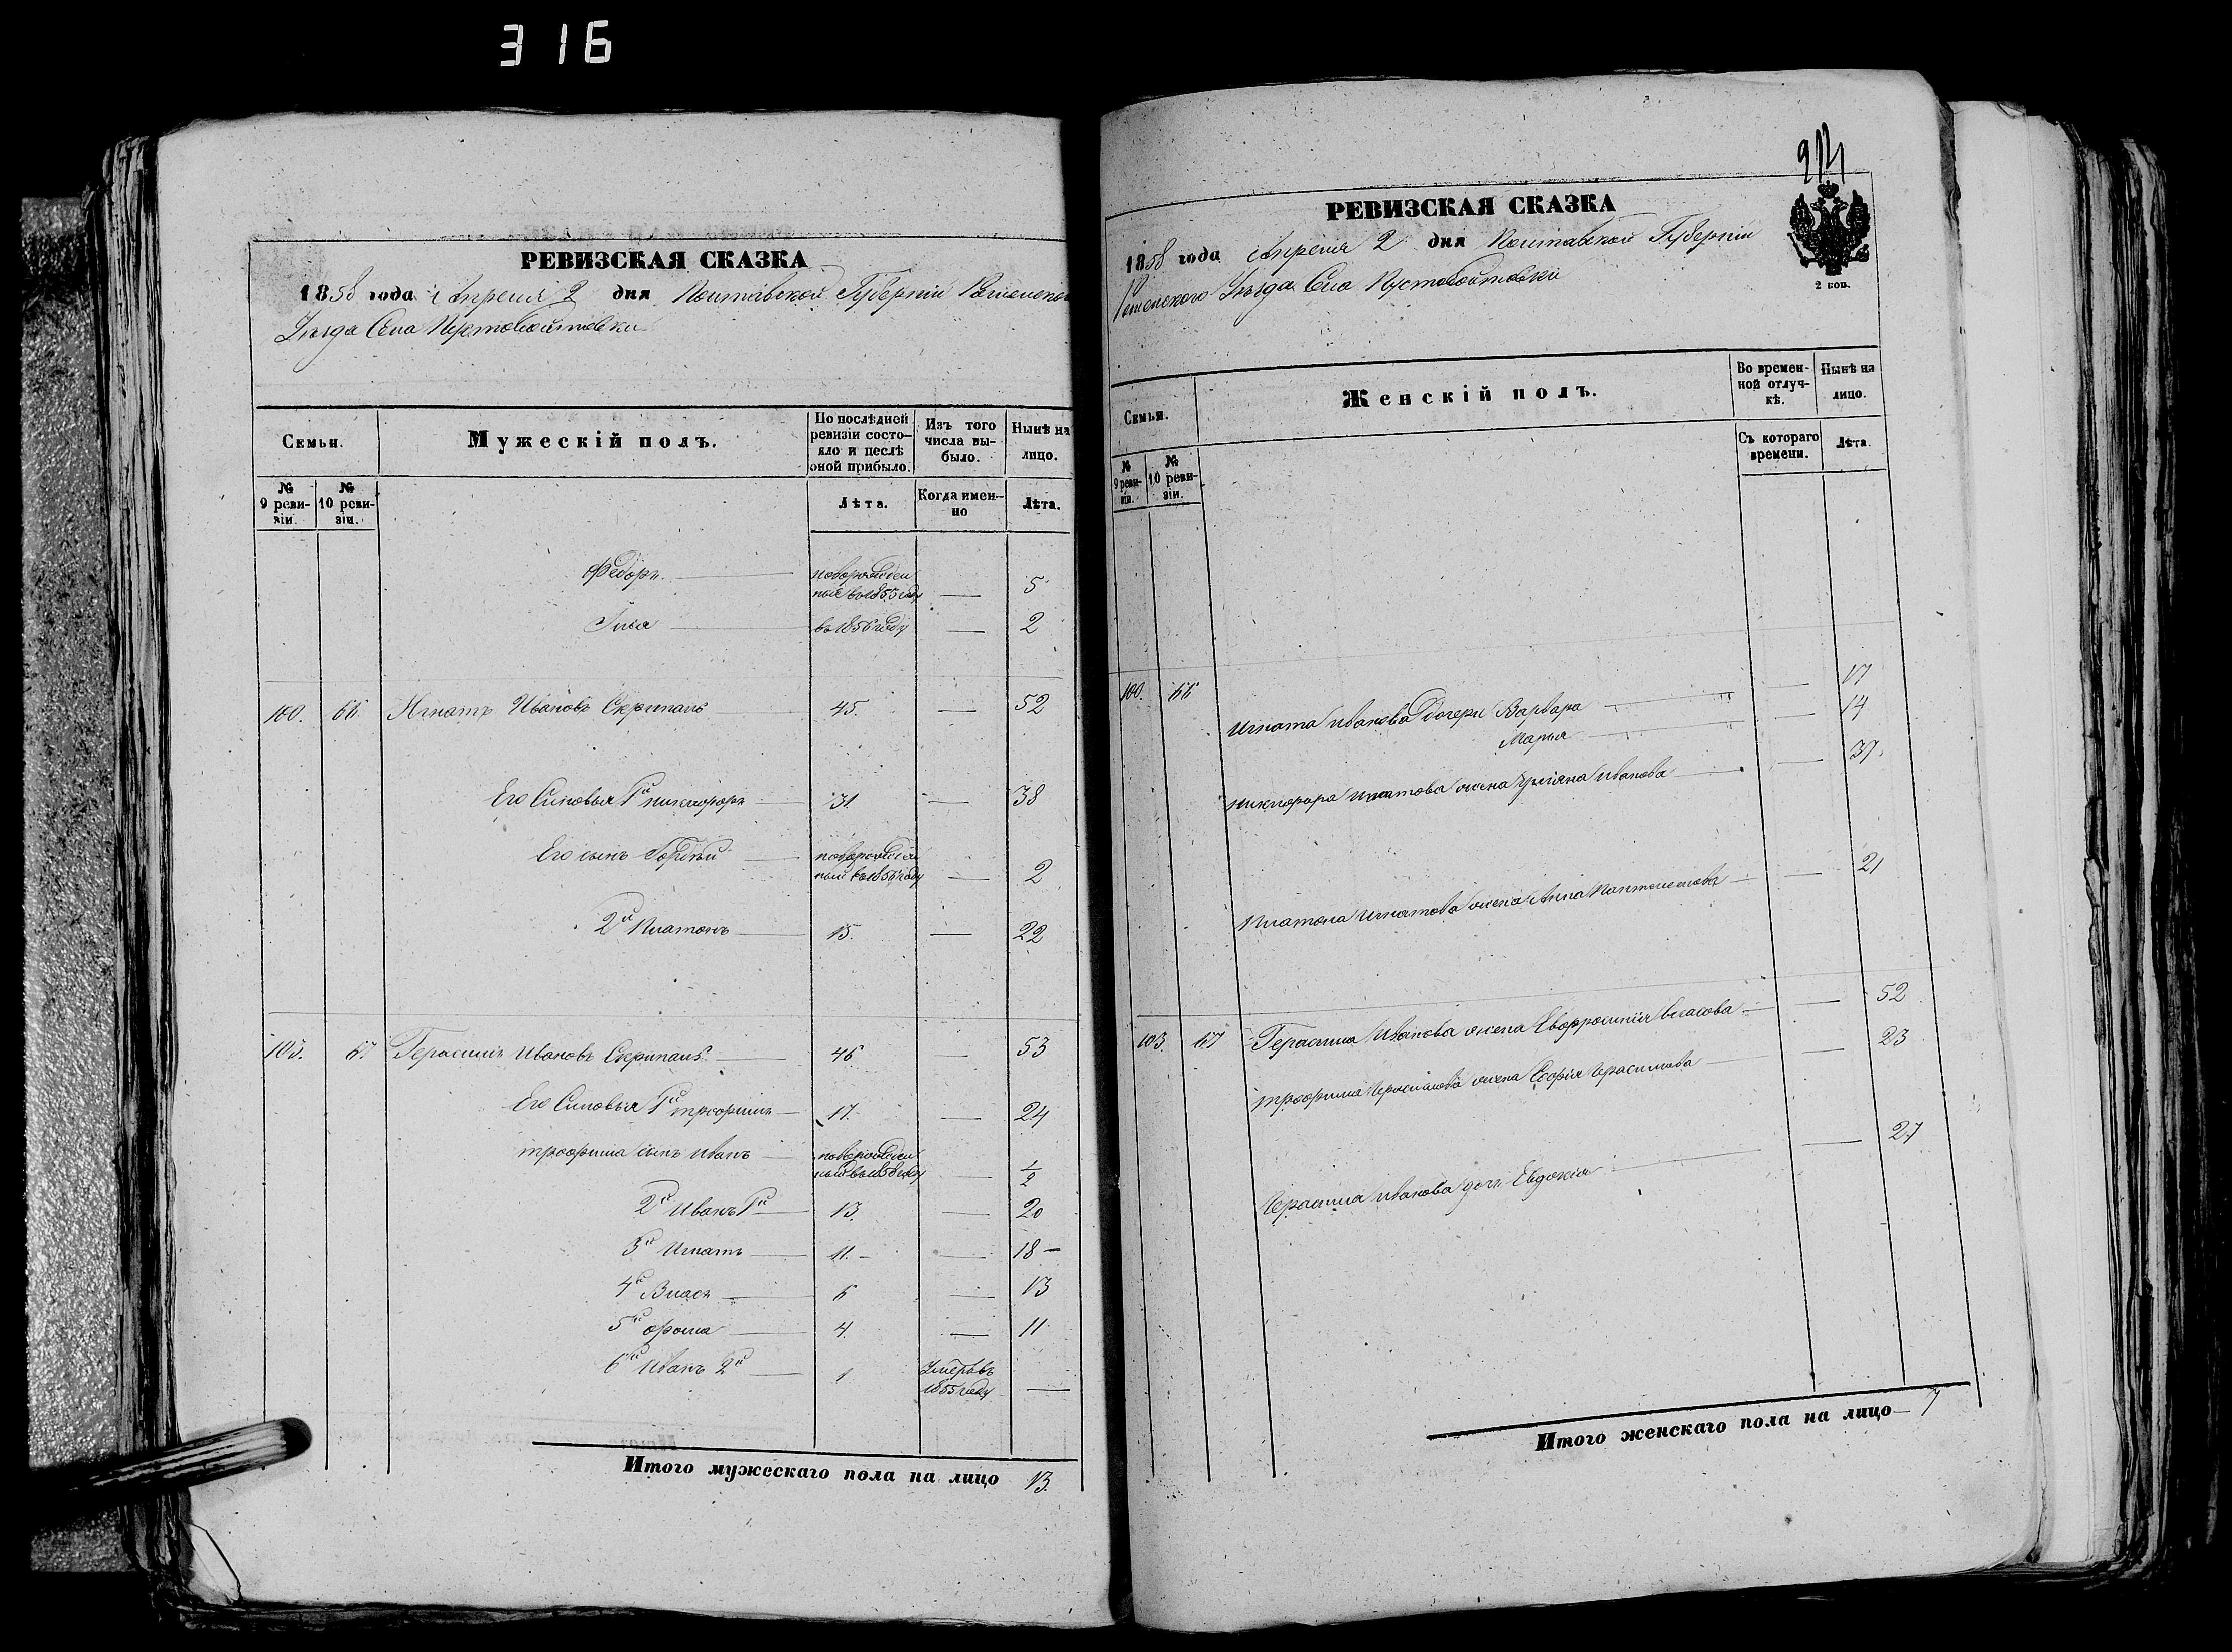 316
РЕВИЗСКАЯ СКАЗКА
1858 года Апреля 2 дня Полтавской Губернiи Роменского
Уезда Села Пустовойтовки
Семьи.
Мужескiй полъ.
По послѣдней ревизiи состояло и послѣ оной прибыло.
Изъ того числа выбыло.
Нынѣ на лицо.
№ 9 ревизiи.
№ 10 ревизiи.
Лѣта.
Когда именно
Лѣта.
Федоръ новорожден
ный въ 1853 году — 5
Илья въ 1856 году — 2
100. 66. Игнатъ Ивановъ Скрипаль 45. — 52
Его Сыновья 1й никифоръ 31. — 38
Его сынъ Гордѣй новорожден
ный въ 1856 году — 2
2й Платонъ 15. — 22
103. 67 Герасимъ Ивановъ Скрипаль 46 — 53
Его Сыновья 1й трофимъ 17. — 24
трофима сынъ иванъ новорожден
ный въ 1858 году — 1/2
2й Иванъ 1й 13. — 20
3й Игнатъ 11. — 18 —
4й Власъ 6 — 13
5й фома 4. — 11
6й Иванъ 2й 1 Умеръ въ
1855 году —
Итого мужескаго пола на лицо 13.
РЕВИЗСКАЯ СКАЗКА
1858 года Апреля 2 дня Полтавской Губернiи
Роменского Уезда Села Пустовойтовки
2 коп.
Семьи.
Женскiй полъ.
Во временной отлучкѣ.
Нынѣ на лицо.
№ 9 ревизiи.
№ 10 ревизiи.
Съ котораго времени.
Лѣта.
100. 66 Игната иванова дочери Варвара — 17
Марья — 14
никифора игнатова жена Ульяна иванова — 37.
Платона игнатова жена Анна — 21
103. 67 Герасима Иванова жена Евфросинiя власова — 52
трофима герасимова жена Софiя герасимова — 23
герасима иванова дочь Евдокiя — 27
Итого женскаго пола на лицо — 7